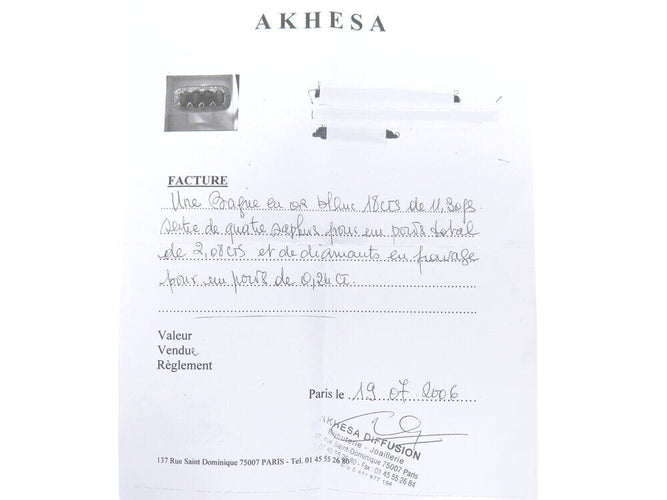 AKHESA
FACTURE
Une Bague en or blanc 18cts de 11,20grs
sertie de quatre saphirs pour un poids total
de 2,08cts et de diamants en
pour un poids de 0,24ct
Valeur
Vendue
Règlement
Paris le 19 07 2006
AKHESA DIFFUSION
Bijouterie - Joaillerie
137, rue Saint-Dominique 75007 Paris
01 45 55 26 80 - Fax : 01 45 55 26 84
137 Rue Saint Dominique 75007 PARIS - Tel. 01 45 55 26 80